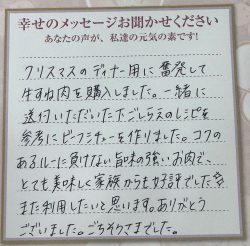 幸せのメッセージお聞かせください
あなたの声が、私達の元気の素です!
クリスマスのディナー用に奮発して
牛すね肉を購入しました。一緒に
送付いただいた下ごしらえのレシピを
参考にビーフシチューを作りました。コクの
あるルーに負けない旨味の強いお肉で、
とても美味しく家族からも好評でした☆
また利用したいと思います。ありがとう
ございました。ごちそうさまでした。